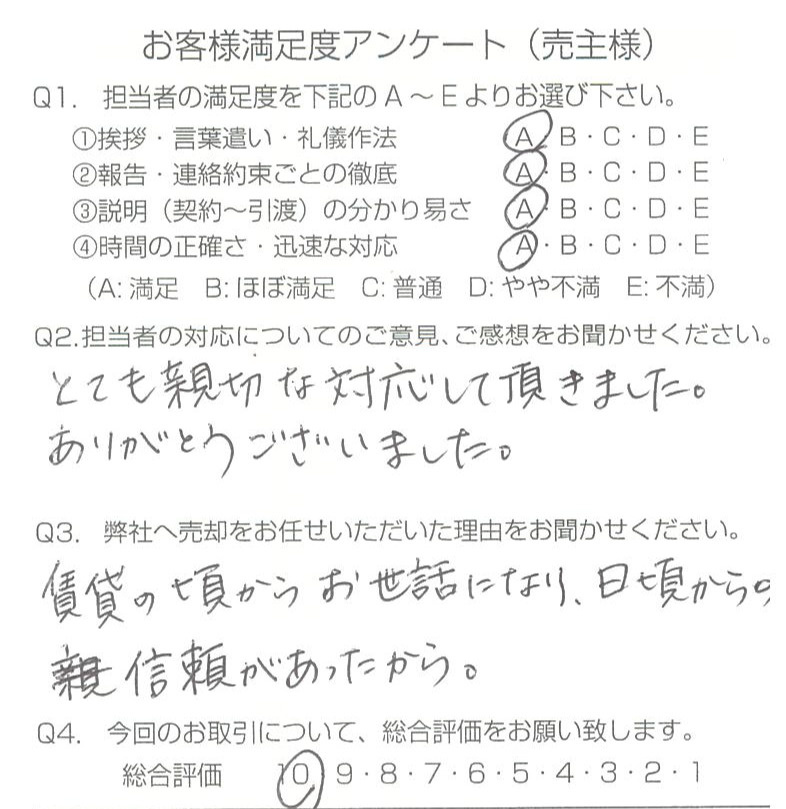 お客様満足度アンケート（売主様）
Q1. 担当者の満足度を下記のA～Eよりお選び下さい。
①挨拶・言葉遣い・礼儀作法 A・B・C・D・E
②報告・連絡約束ごとの徹底 A・B・C・D・E
③説明（契約～引渡）の分かり易さ A・B・C・D・E
④時間の正確さ・迅速な対応 A・B・C・D・E
（A: 満足 B: ほぼ満足 C: 普通 D: やや不満 E: 不満）
Q2.担当者の対応についてのご意見、ご感想をお聞かせください。
とても親切な対応して頂きました。
ありがとうございました。
Q3. 弊社へ売却をお任せいただいた理由をお聞かせください。
賃貸の頃からお世話になり、日頃からの
信頼があったから。
Q4. 今回のお取引について、総合評価をお願い致します。
総合評価 10・9・8・7・6・5・4・3・2・1